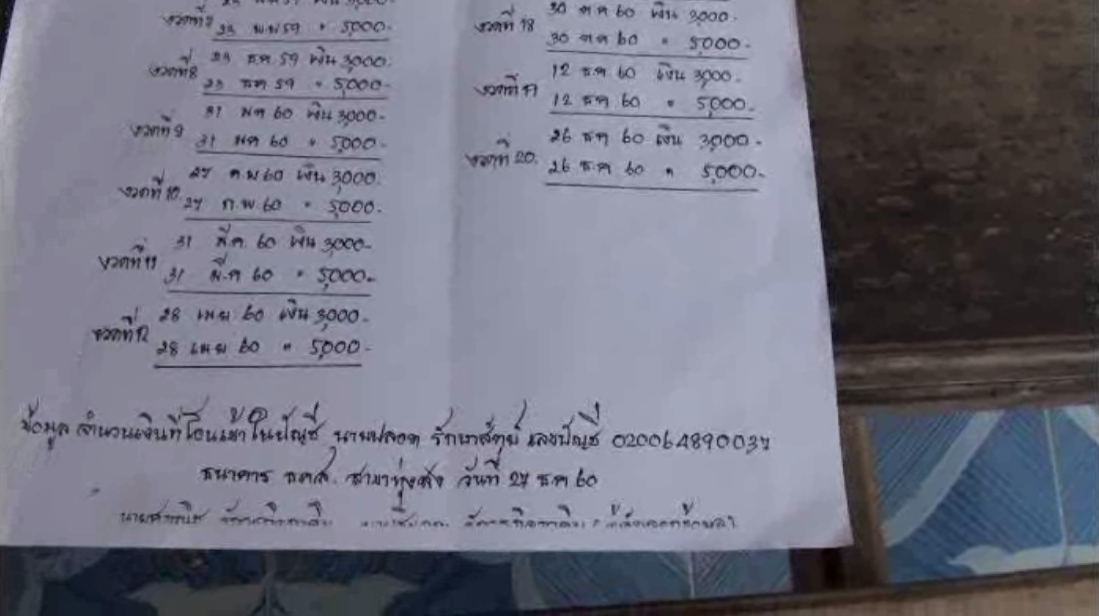 พย 59 เงิน 3,000.
งวดที่ 7
23 พย 59 " 5,000.
23 ธค 59 เงิน 3,000.
งวดที่ 8
23 ธค 59 " 5,000.
31 มค 60 เงิน 3,000.
งวดที่ 9
31 มค 60 " 5,000.
27 ก.พ 60 เงิน 3,000.
งวดที่ 10
27 ก.พ 60 " 5,000.
31 มี.ค. 60 เงิน 3,000.
งวดที่ 11
31 มี.ค 60 " 5,000.
28 เมย 60 เงิน 3,000.
งวดที่ 12
28 เมย 60 " 5,000.
30 ตค 60 เงิน 3,000.
งวดที่ 18
30 ตค 60 " 5,000.
12 ธค 60 เงิน 3,000.
งวดที่ 19
12 ธค 60 " 5,000.
26 ธค 60 เงิน 3,000.
งวดที่ 20.
26 ธ.ค 60 " 5,000.
ข้อมูล จำนวนเงินที่โอนเข้าในบัญชี นายปลอด รักษาสัตย์ เลขบัญชี 020064890037
ธนาคาร ธกส. สาขาทุ่งตัง วันที่ 27 ธ.ค 60